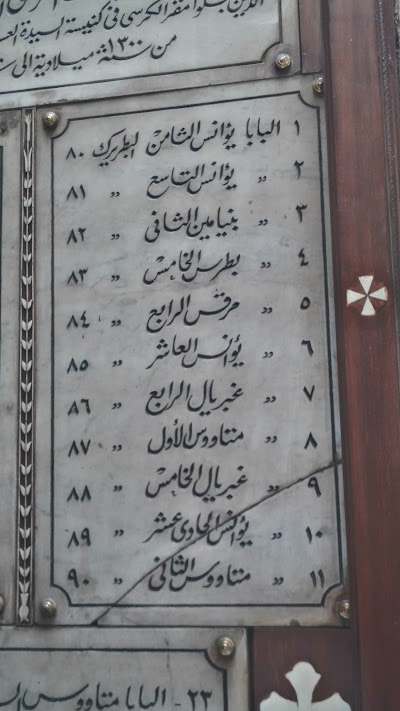 الذين جعلوا مقر الكرسى فى كنيسة السيدة
من سنة ١٣٠٠ ميلادية الى
١ البابا يؤانس الثامن البطريرك ٨٠
٢ " يؤانس التاسع " ٨١
٣ " بنيامين الثانى " ٨٢
٤ " بطرس الخامس " ٨٣
٥ " مرقس الرابع " ٨٤
٦ " يؤانس العاشر " ٨٥
٧ " غبريال الرابع " ٨٦
٨ " متاووس الأول " ٨٧
٩ " غبريال الخامس " ٨٨
١٠ " يؤانس الحادى عشر " ٨٩
١١ " متاووس الثانى " ٩٠
٢٣ - البابا متاووس